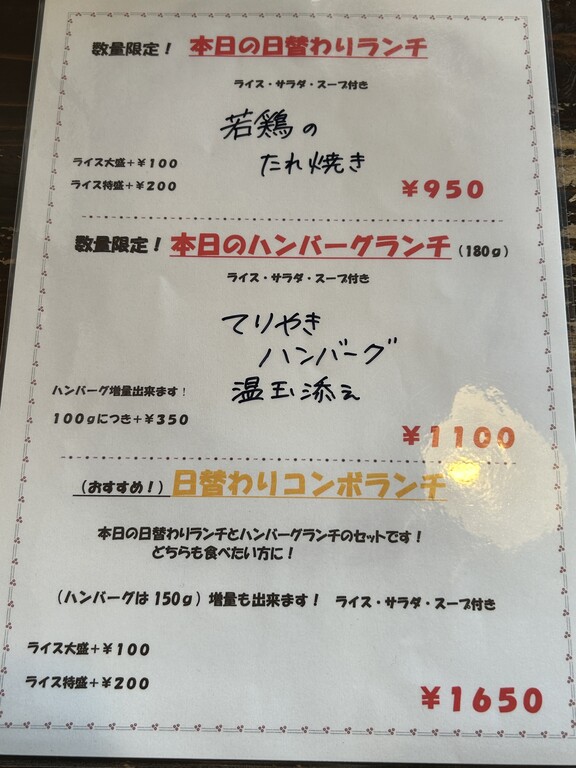 数量限定！ 本日の日替わりランチ
ライス・サラダ・スープ付き
若鶏の
たれ焼き
ライス大盛＋￥100
ライス特盛＋￥200
￥950
数量限定！ 本日のハンバーグランチ（180ｇ）
ライス・サラダ・スープ付き
てりやき
ハンバーグ
温玉添え
ハンバーグ増量出来ます！
100ｇにつき＋￥350
￥1100
（おすすめ！）日替わりコンボランチ
本日の日替わりランチとハンバーグランチのセットです！
どちらも食べたい方に！
（ハンバーグは150ｇ）増量も出来ます！ ライス・サラダ・スープ付き
ライス大盛＋￥100
ライス特盛＋￥200
￥1650